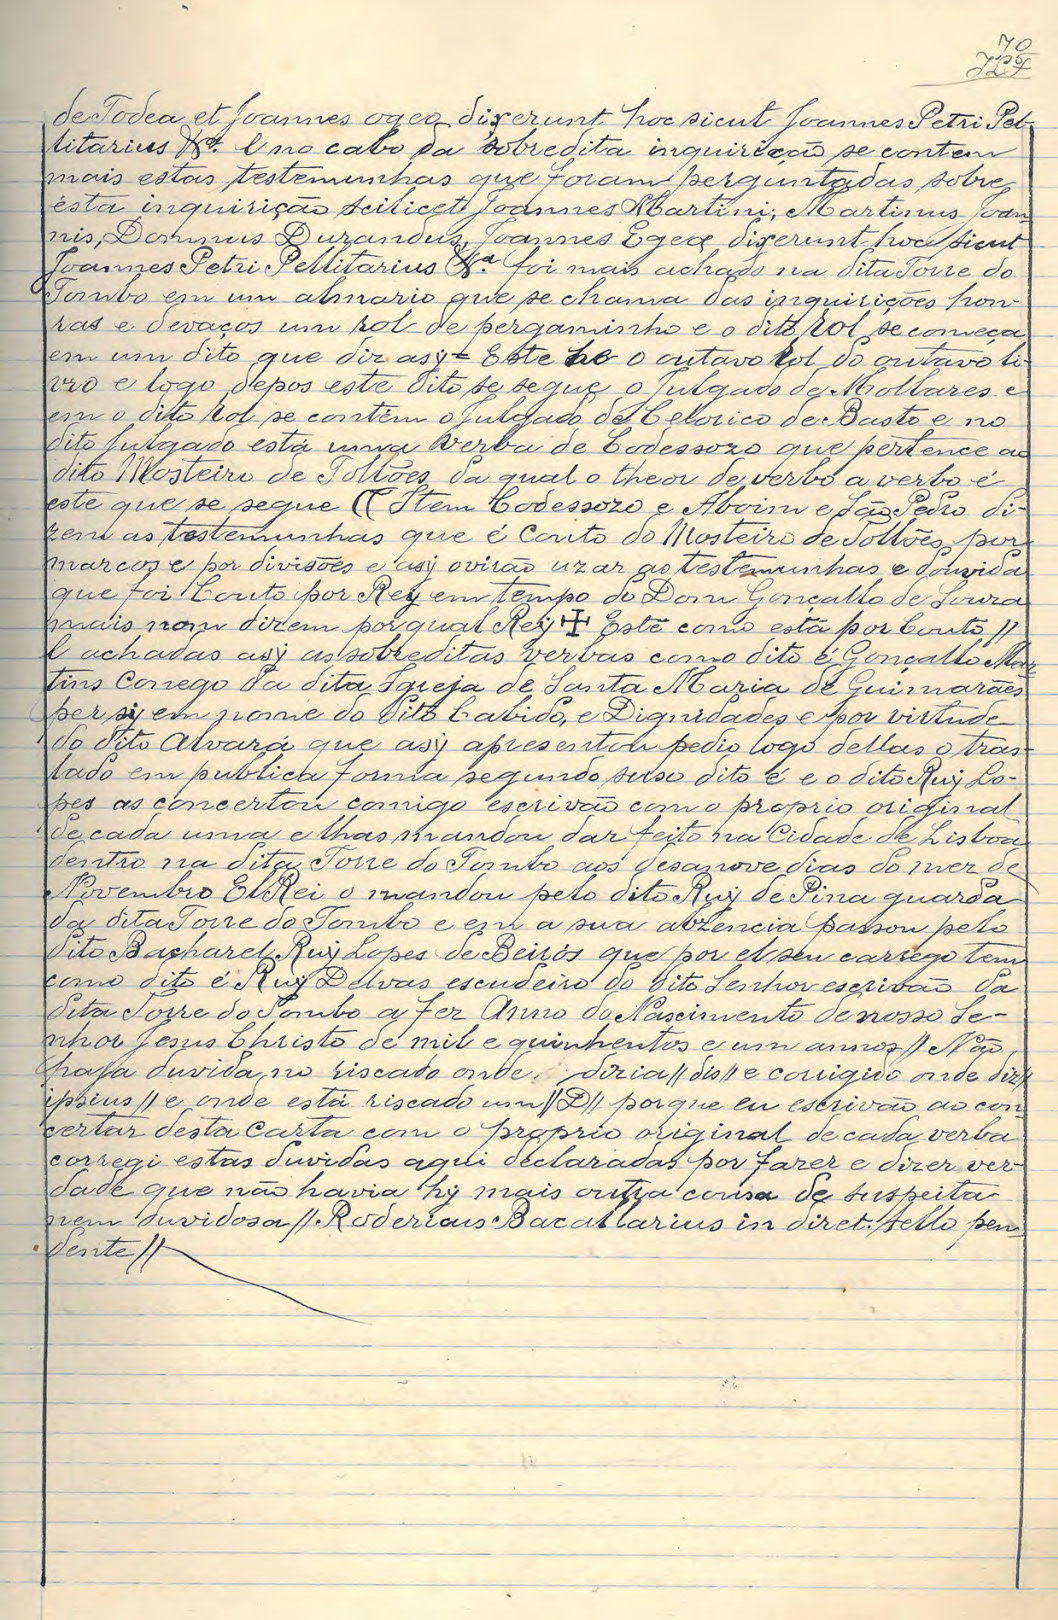 70
de Todea et Joannes ogea dixerunt hoc sicut Joannes Petri Pel-
litarius X.ª E no cabo da sobredita inquirição se contem
mais estas testemunhas que foram perguntadas sobre
esta inquirição scilicet Joannes Martini, Martinus Joan-
nis, Domnus Durandus, Joannes Egeæ dixerunt hoc sicut
Joannes Petri Pellitarius X.ª foi mais achado na dita Torre do
Tombo em um almario que se chama das inquirições hon-
ras e devaços um rol de pergaminho e o dito rol se começa
em um dito que diz asy = Este he o outavo rol do outavo li-
vro e logo depos este dito se segue o Julgado de Mollares e
em o dito rol se contêm o Julgado de Celorico de Basto e no
dito Julgado está uma verba de Codessozo que pertence ao
dito Mosteiro de Tollões da qual o theor de verbo a verbo é
este que se segue (( Item Codessozo e Aboim e São Pedro di-
zem as testemunhas que é Couto do Mosteiro de Tollões por
marcos e por divisões e asy ovirão uzar as testemunhas e douvida
que foi Couto por Rey em tempo do Dom Gonçallo de Souza
mais nom dizem por qual Rey ✠ Este como está por Couto //
E achadas asy as sobreditas verbas como dito é Gonçallo Mar-
tins Conego da dita Igreja de Santa Maria de Guimarães
per sy em nome do dito Cabido, e Dignidades e por virtude
do dito Alvará que asy apresentou pedio logo dellas o tras-
lado em publica forma segundo suso dito é e o dito Ruy Lo-
pes as concertou comigo escrivão com o proprio original
de cada uma e lhas mandou dar feito na Cidade de Lisboa
dentro na dita Torre do Tombo aos desanove dias do mez de
Novembro El Rei o mandou pelo dito Ruy de Pina guarda
da dita Torre do Tombo e em a sua abzencia passou pelo
dito Bacharel Ruy Lopes de Beirós que por el seu carrego tem
como dito é Ruy Delvas escudeiro do dito Senhor escrivão da
dita Torre do Tombo a fez Anno do Nascimento de nosso Se-
nhor Jesus Christo de mil e quinhentos e um annos // Não
haja duvida no riscado onde diria // dis // e corrigido onde diz //
ipsius // e onde está riscado um // D // porque eu escrivão ao con-
certar desta Carta com o proprio original de cada verba
corregi estas duvidas aqui declaradas por fazer e dizer ver-
dade que não havia hy mais outra cousa de suspeita
nem duvidosa // Rodericus Bacallarius in diret. sello pen-
dente //